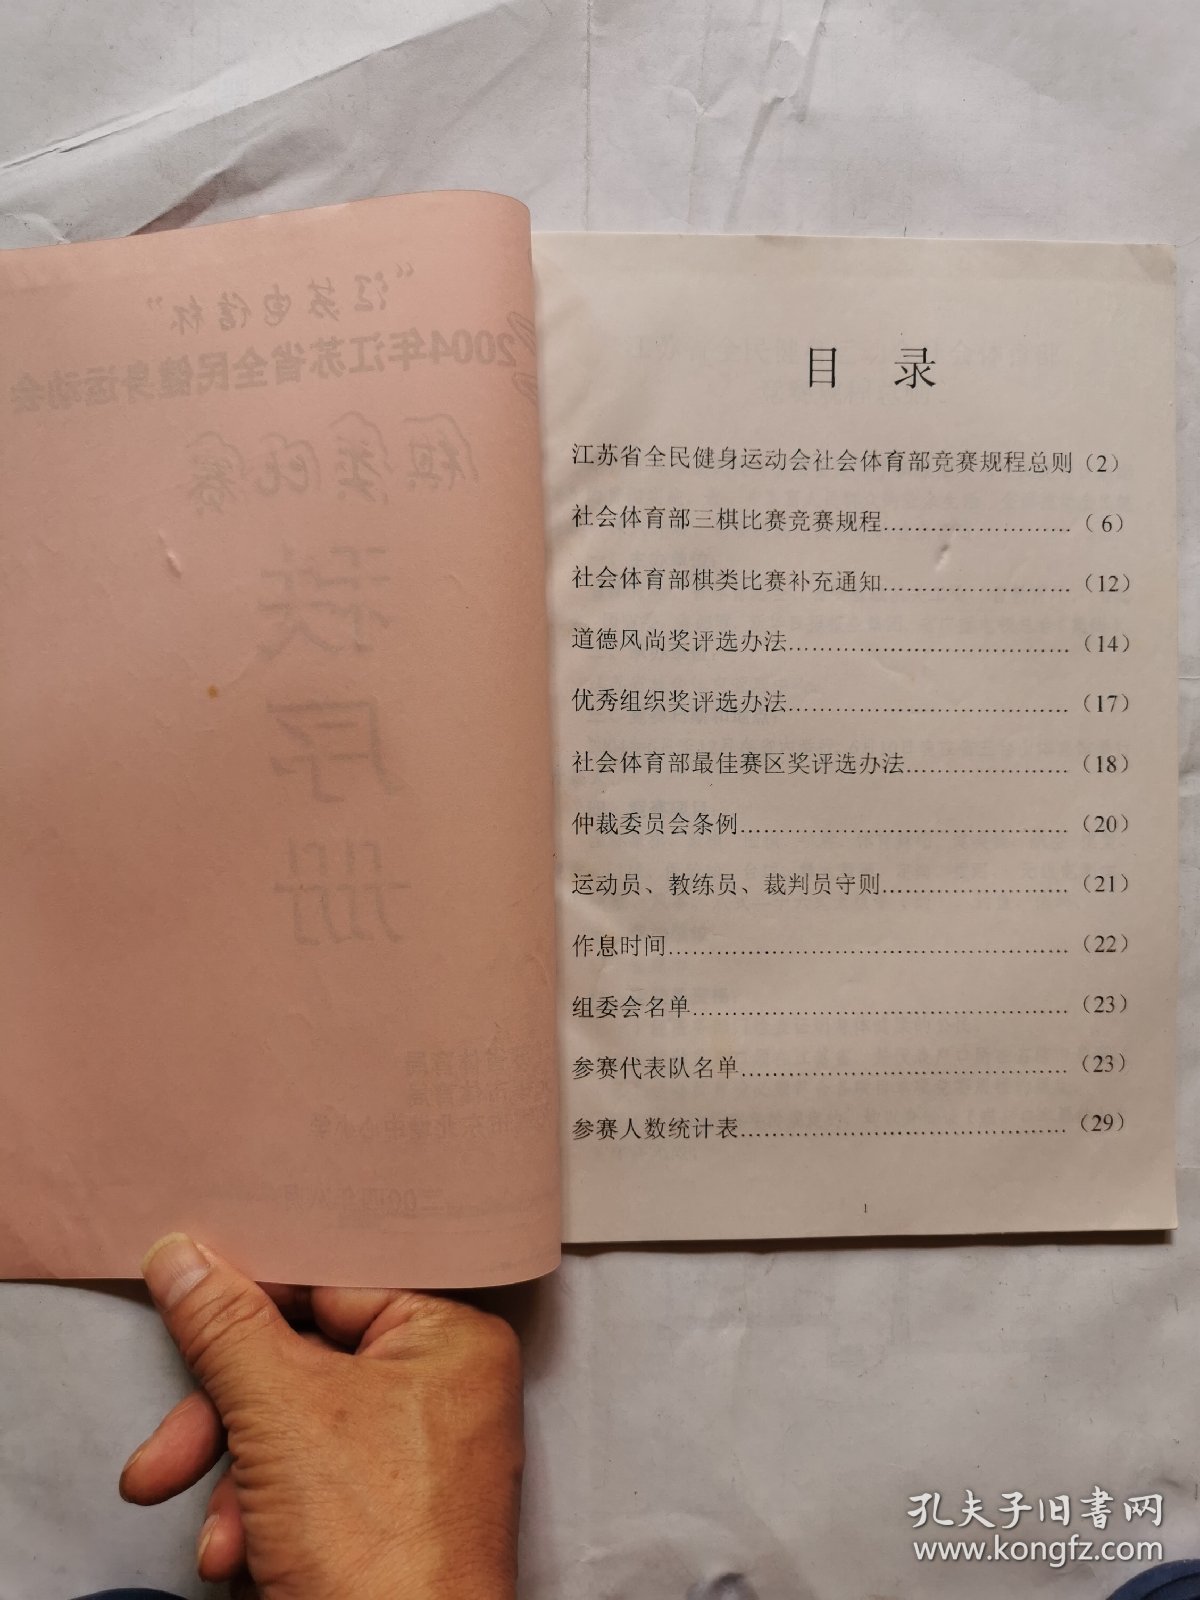 “江苏电信杯”
2004年江苏省全民健身运动会
棋类比赛
秩
序
册
目 录
江苏省全民健身运动会社会体育部竞赛规程总则（2）
社会体育部三棋比赛竞赛规程……………………（6）
社会体育部棋类比赛补充通知……………………（12）
道德风尚奖评选办法………………………………（14）
优秀组织奖评选办法………………………………（17）
社会体育部最佳赛区奖评选办法…………………（18）
仲裁委员会条例……………………………………（20）
运动员、教练员、裁判员守则……………………（21）
作息时间……………………………………………（22）
组委会名单…………………………………………（23）
参赛代表队名单……………………………………（23）
参赛人数统计表……………………………………（29）
1
孔夫子旧书网
www.kongfz.com